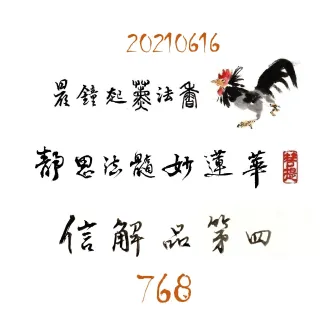 20210616
晨鐘起薰法香
靜思法髓妙蓮華
信解品第四
768